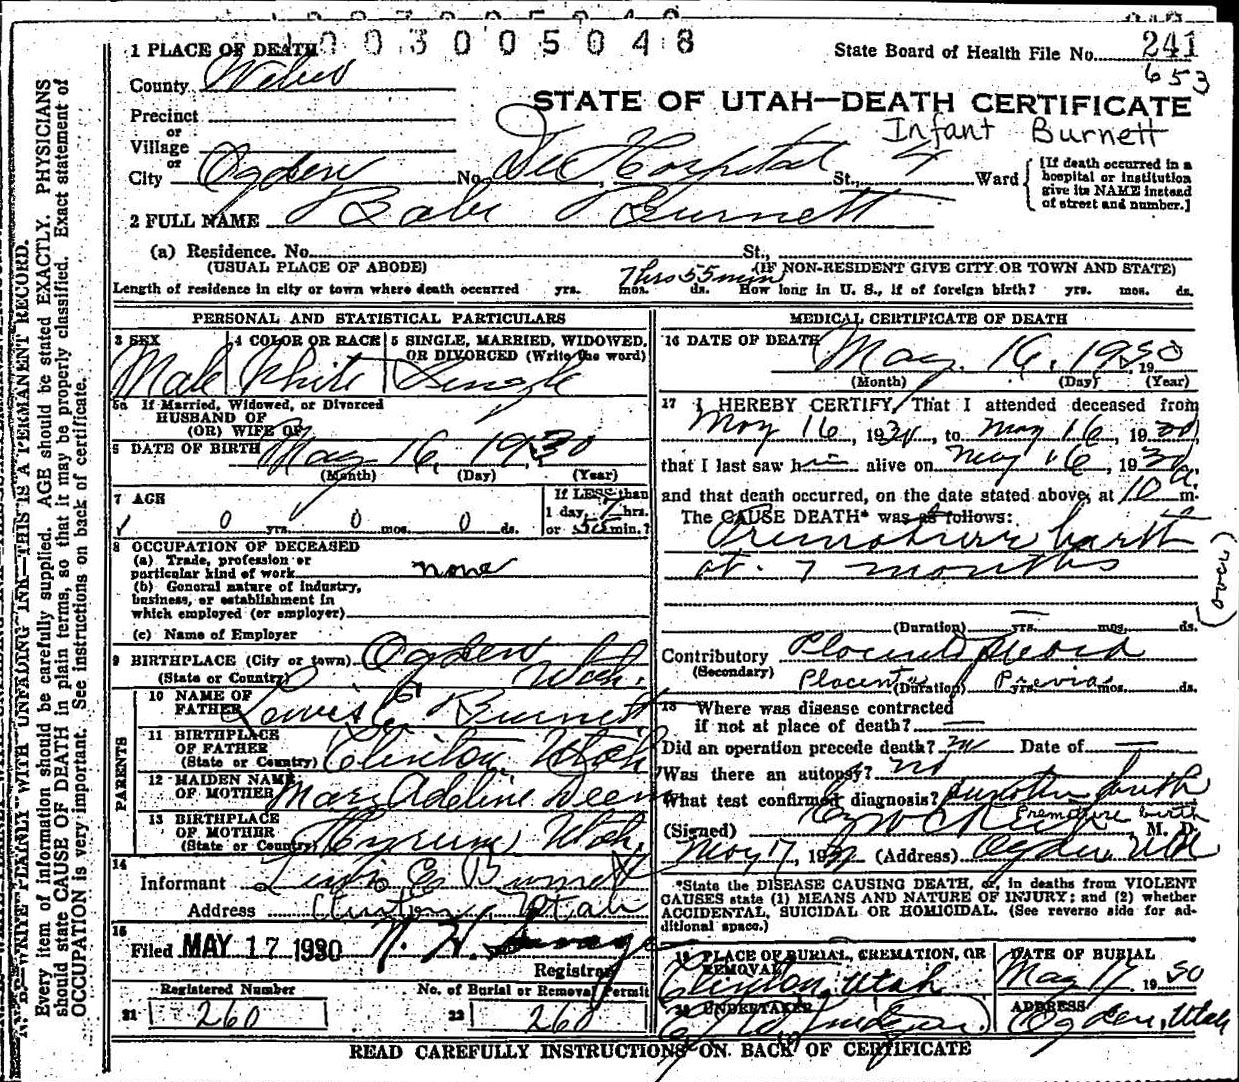 003005048
1 PLACE OF DEATH
State Board of Health File No. 241
653
County Weber
STATE OF UTAH—DEATH CERTIFICATE
Infant Burnett
Precinct
or
Village
or
City Ogden No. Dee Hospital St., 4 Ward
[If death occurred in a
hospital or institution
give its NAME instead
of street and number.]
2 FULL NAME Babe Burnett
(a) Residence. No. St.,
(USUAL PLACE OF ABODE) (IF NON-RESIDENT GIVE CITY OR TOWN AND STATE)
7 hrs 55 min
Length of residence in city or town where death occurred yrs. mos. ds. How long in U. S., if of foreign birth? yrs. mos. ds.
PERSONAL AND STATISTICAL PARTICULARS
3 SEX 4 COLOR OR RACE 5 SINGLE, MARRIED, WIDOWED,
OR DIVORCED (Write the word)
Male White Single
5a If Married, Widowed, or Divorced
HUSBAND OF
(OR) WIFE OF
6 DATE OF BIRTH May 16, 1930
(Month) (Day) (Year)
7 AGE If LESS than
0 yrs. 0 mos. 0 ds. 1 day, 7 hrs.
or 55 min.?
8 OCCUPATION OF DECEASED
(a) Trade, profession or
particular kind of work none
(b) General nature of industry,
business, or establishment in
which employed (or employer)
(c) Name of Employer
9 BIRTHPLACE (City or town) Ogden
(State or Country) Utah.
PARENTS
10 NAME OF
FATHER Lewis E Burnett
11 BIRTHPLACE
OF FATHER
(State or Country) Clinton, Utah
12 MAIDEN NAME
OF MOTHER Mary Adeline Deem
13 BIRTHPLACE
OF MOTHER
(State or Country) Hyrum, Utah.
14
Informant Lewis E Burnett
Address Clinton, Utah
15
Filed MAY 17 1930 Savage
Registrar
Registered Number No. of Burial or Removal Permit
21 260 22 260
MEDICAL CERTIFICATE OF DEATH
16 DATE OF DEATH May. 16. 1930 19
(Month) (Day) (Year)
17 I HEREBY CERTIFY, That I attended deceased from
May 16, 1930, to May 16, 1930,
that I last saw him alive on May 16, 1930,
and that death occurred, on the date stated above, at 10 a. m.
The CAUSE DEATH* was as follows:
Premature birth
at 7 months
(over)
(Duration) yrs. mos. ds.
Contributory Placenta previa
(Secondary) Placenta Previa
(Duration) yrs. mos. ds.
18 Where was disease contracted
if not at place of death? —
Did an operation precede death? no Date of —
Was there an autopsy? no
What test confirmed diagnosis? birth
Premature birth
(Signed) , M. D.
May 17, 1930 (Address) Ogden, Utah
*State the DISEASE CAUSING DEATH, or, in deaths from VIOLENT
CAUSES state (1) MEANS AND NATURE OF INJURY; and (2) whether
ACCIDENTAL, SUICIDAL OR HOMICIDAL. (See reverse side for ad-
ditional space.)
19 PLACE OF BURIAL, CREMATION, OR
REMOVAL
Clinton, Utah
DATE OF BURIAL
May 17 1930
20 UNDERTAKER
ADDRESS
Ogden, Utah
READ CAREFULLY INSTRUCTIONS ON BACK OF CERTIFICATE
WRITE PLAINLY WITH UNFADING INK—THIS IS A PERMANENT RECORD.
Every item of information should be carefully supplied. AGE should be stated EXACTLY. PHYSICIANS
should state CAUSE OF DEATH in plain terms, so that it may be properly classified. Exact statement of
OCCUPATION is very important. See instructions on back of certificate.